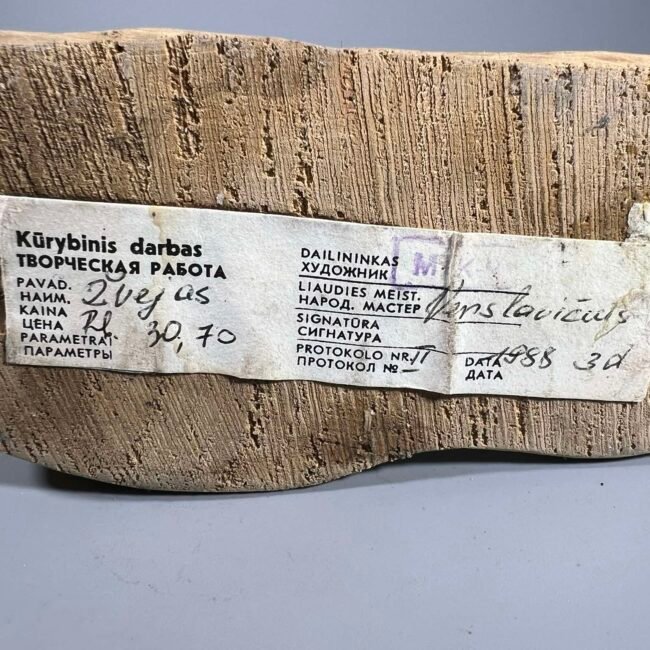 Kūrybinis darbas
ТВОРЧЕСКАЯ РАБОТА
PAVAD.
НАИМ. Žvejas
KAINA
ЦЕНА 30,70
PARAMETRAI
ПАРАМЕТРЫ
DAILININKAS
ХУДОЖНИК
LIAUDIES MEIST.
НАРОД. МАСТЕР
SIGNATŪRA
СИГНАТУРА
PROTOKOLO NR. II
ПРОТОКОЛ №
DATA 1988 3d
ДАТА